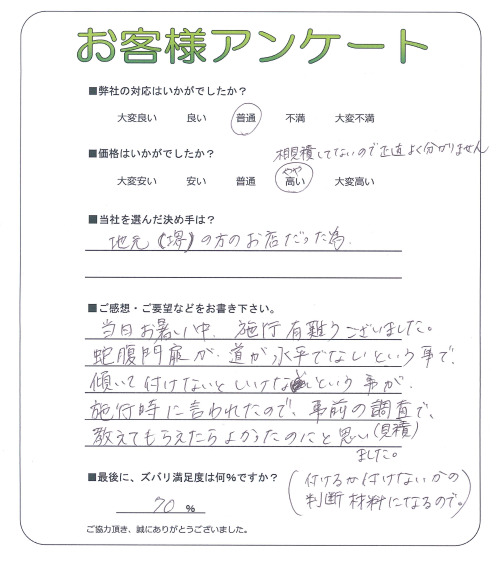 お客様アンケート
■弊社の対応はいかがでしたか？
大変良い　良い　普通　不満　大変不満
■価格はいかがでしたか？
相見積してないので正直よく分かりません
大変安い　安い　普通　やや高い　大変高い
■当社を選んだ決め手は？
地元（堺）の方のお店だった為.
■ご感想・ご要望などをお書き下さい。
当日お暑い中、施行有難うございました。
蛇腹門扉が、道が水平でないという事で、
傾いて付けないといけないという事が、
施行時に言われたので、事前の調査で、
教えてもらえたらよかったのにと思い
(見積)
ました。
■最後に、ズバリ満足度は何%ですか？
70 %
(付けるか付けないかの
判断材料になるので。)
ご協力頂き、誠にありがとうございました。